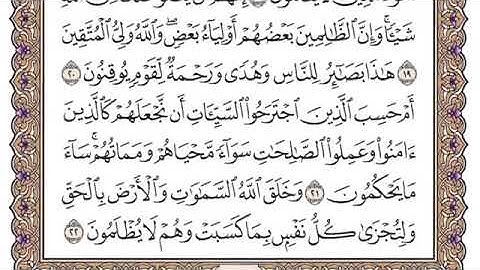 شَيْـًٔا ۚ وَإِنَّ ٱلظَّٰلِمِينَ بَعْضُهُمْ أَوْلِيَآءُ بَعْضٍ ۖ وَٱللَّهُ وَلِىُّ ٱلْمُتَّقِينَ
١٩ هَٰذَا بَصَٰٓئِرُ لِلنَّاسِ وَهُدًى وَرَحْمَةٌ لِّقَوْمٍ يُوقِنُونَ ٢٠
أَمْ حَسِبَ ٱلَّذِينَ ٱجْتَرَحُوا۟ ٱلسَّيِّـَٔاتِ أَن نَّجْعَلَهُمْ كَٱلَّذِينَ
ءَامَنُوا۟ وَعَمِلُوا۟ ٱلصَّٰلِحَٰتِ سَوَآءً مَّحْيَاهُمْ وَمَمَاتُهُمْ ۚ سَآءَ
مَا يَحْكُمُونَ ٢١ وَخَلَقَ ٱللَّهُ ٱلسَّمَٰوَٰتِ وَٱلْأَرْضَ بِٱلْحَقِّ
وَلِتُجْزَىٰ كُلُّ نَفْسٍۭ بِمَا كَسَبَتْ وَهُمْ لَا يُظْلَمُونَ ٢٢